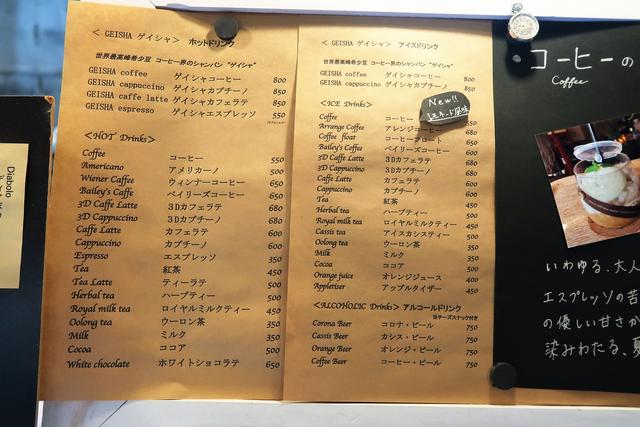 < GEISHA ゲイシャ> ホットドリンク
世界最高峰希少豆 コーヒー界のシャンパン "ゲイシャ"
GEISHA coffee ゲイシャコーヒー 800
GEISHA cappuccino ゲイシャカプチーノ 850
GEISHA caffe latte ゲイシャカフェラテ 850
GEISHA espresso ゲイシャエスプレッソ 550
<HOT Drinks>
Coffee コーヒー 550
Americano アメリカーノ 500
Wiener Caffee ウィンナーコーヒー 650
Bailey's Caffe ベイリーズコーヒー 650
3D Caffe Latte 3Dカフェラテ 680
3D Cappuccino 3Dカプチーノ 680
Caffe Latte カフェラテ 600
Cappuccino カプチーノ 600
Espresso エスプレッソ 350
Tea 紅茶 450
Tea Latte ティーラテ 500
Herbal tea ハーブティー 500
Royal milk tea ロイヤルミルクティー 450
Oolong tea ウーロン茶 350
Milk ミルク 350
Cocoa ココア 500
White chocolate ホワイトショコラテ 650
< GEISHA ゲイシャ> アイスドリンク
世界最高峰希少豆 コーヒー界のシャンパン "ゲイシャ"
GEISHA coffee ゲイシャコーヒー 800
GEISHA cappuccino ゲイシャカプチーノ 850
GEISHA caffe latte ゲイシャカフェラテ 850
New!!
レモネード風味
<ICE Drinks>
Coffee コーヒー 550
Arrange Coffee アレンジコーヒー 680
Coffee float コーヒーフロート 650
Bailey's Coffee ベイリーズコーヒー 660
3D Caffe Latte 3Dカフェラテ 680
3D Cappuccino 3Dカプチーノ 680
Caffe Latte カフェラテ 600
Cappuccino カプチーノ 600
Tea 紅茶 450
Herbal tea ハーブティー 500
Royal milk tea ロイヤルミルクティー 450
Cassis tea アイスカシスティー 500
Oolong tea ウーロン茶 350
Milk ミルク 350
Cocoa ココア 500
Orange juice オレンジジュース 400
Appletiser アップルタイザー 450
<ALCOHOLIC Drinks> アルコールドリンク
※チーズスナック付き
Corona Beer コロナ・ビール 750
Cassis Beer カシス・ビール 750
Orange Beer オレンジ・ビール 750
Coffee Beer コーヒー・ビール 750
コーヒーの
Coffee
いわゆる、大人
エスプレッソの苦
の優しい甘さか
染みわたる、夏
Diabolo